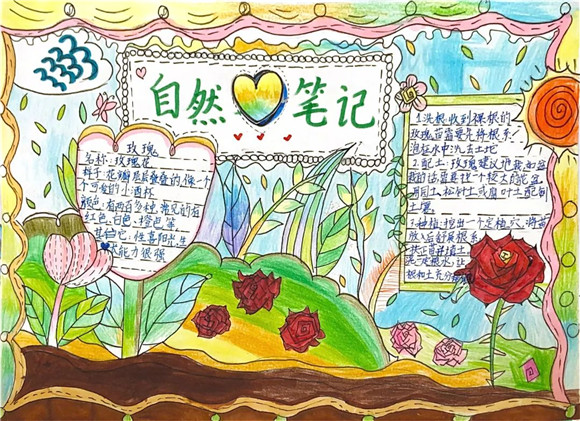 自然笔记
玫瑰
名称:玫瑰花
样子:花瓣层层叠叠的,像一个
个可爱的小酒杯
颜色:有两百多种,常见的有
红色、白色、橙色等
其它:性喜阳光,生
长能力很强
1.洗根:收到裸根的
玫瑰苗需要先将根系
泡在水中,洗去土垢
2.配土:玫瑰建议使用
用园土、松针土或腐叶土配制
土壤
3.种植:挖出一个定植穴,将苗
放入后舒展根系
扶正苗并填土
根和土充分